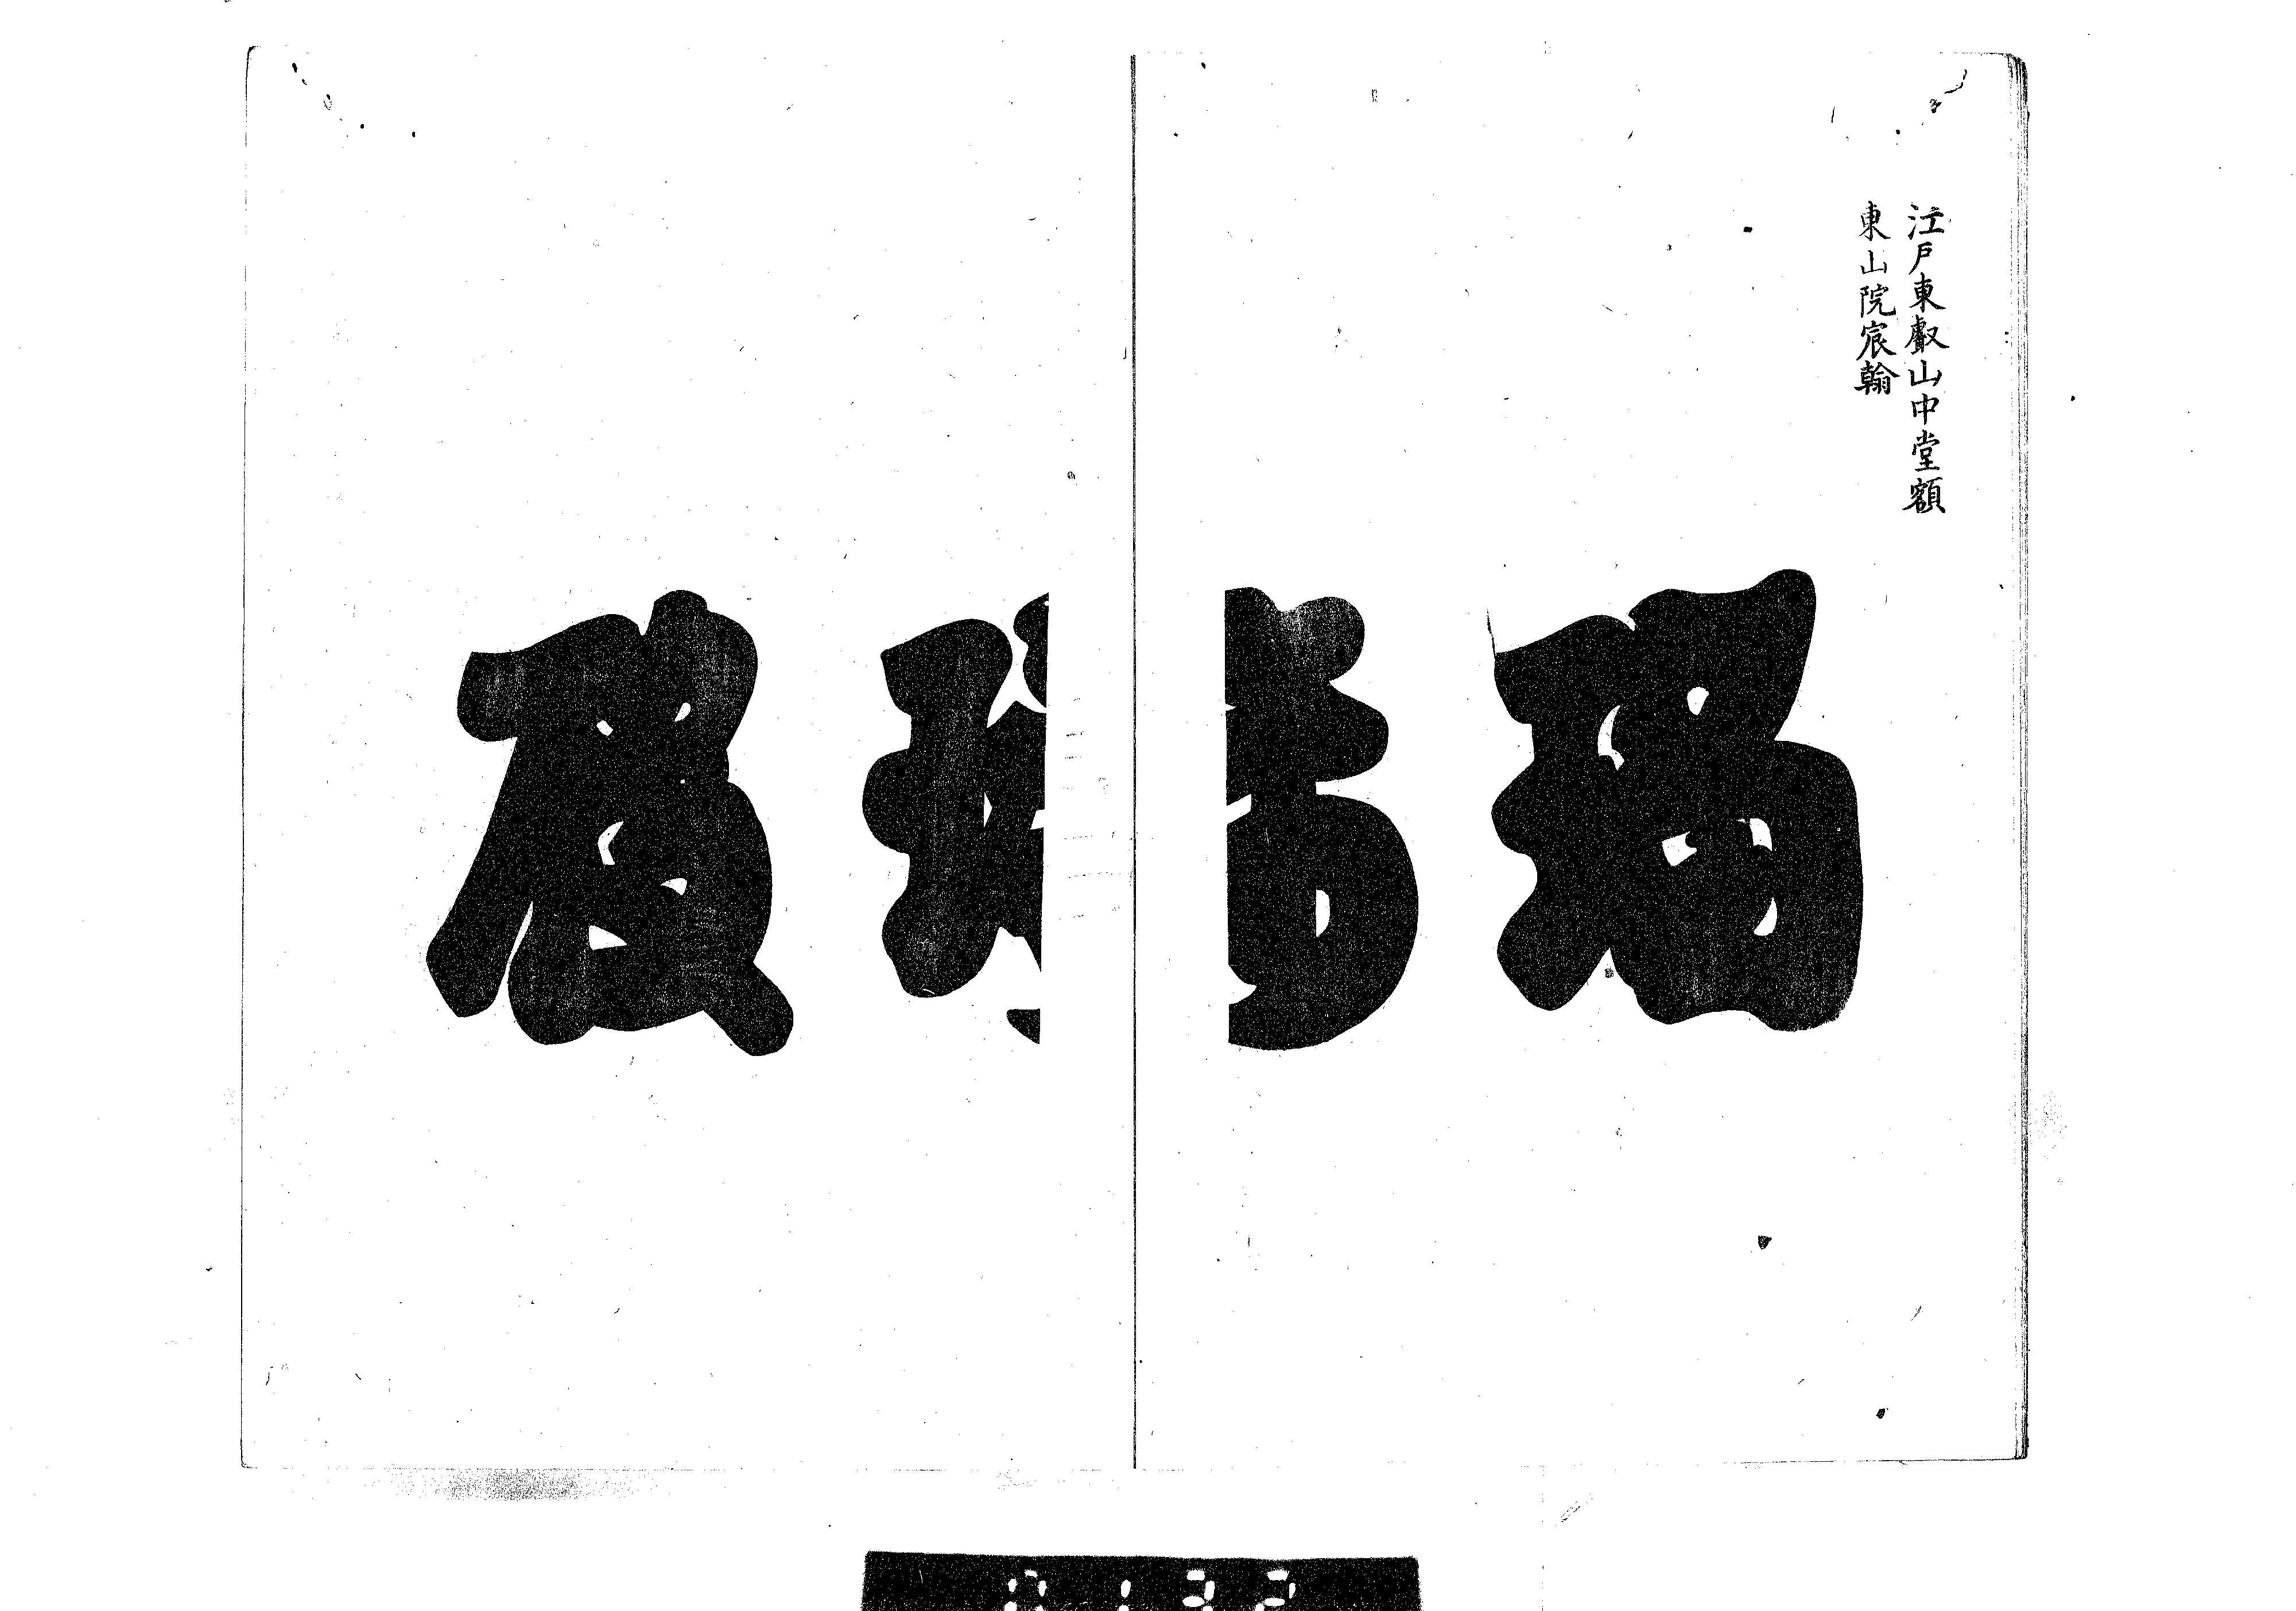 江戸東叡山中堂額
東山院宸翰
瑠璃殿